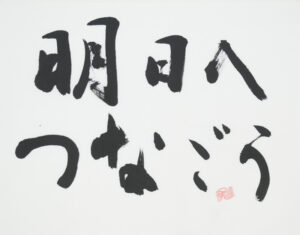 明日へ
つなごう